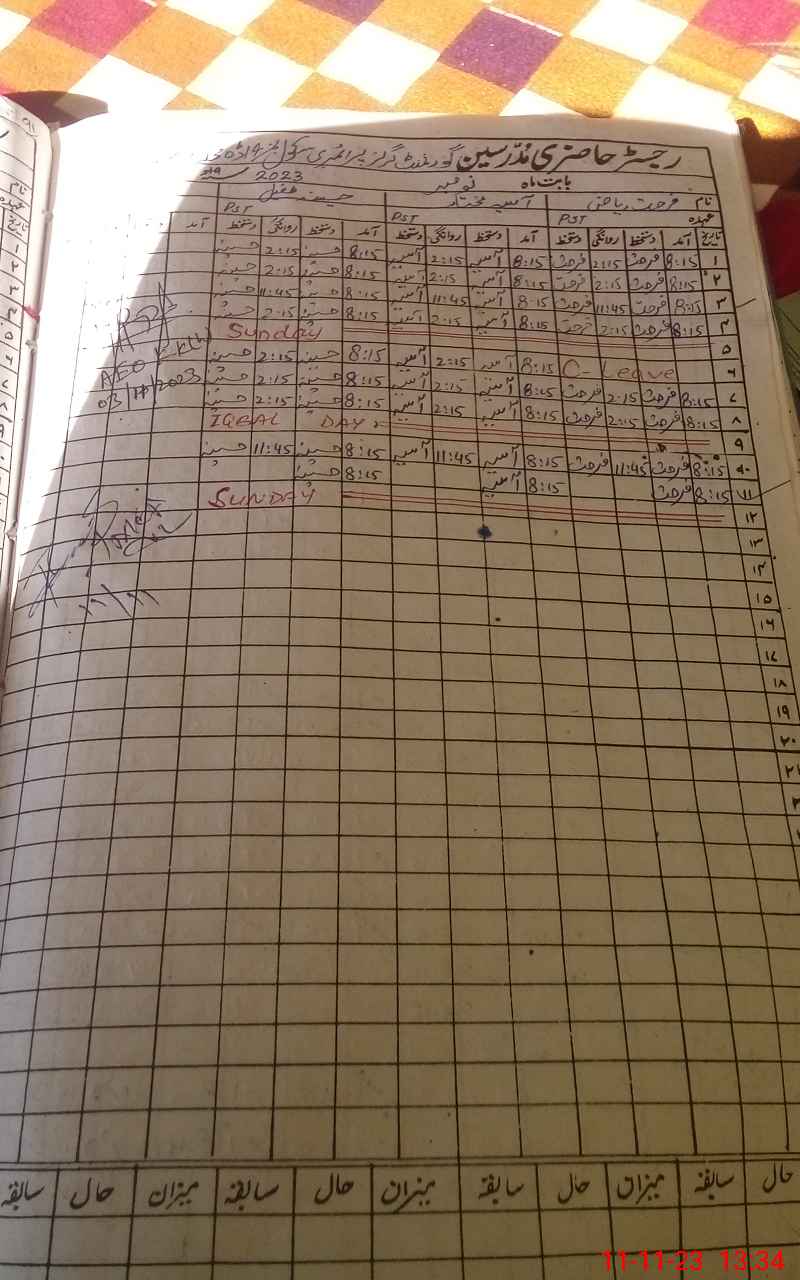 رجسٹر حاضری مدرسین گورنمنٹ گرلز پرائمری سکول
بابت ماہ نومبر 2023
نام فرحت ریاض آسیہ مختار
عہدہ PST PST PST
تاریخ آمد دستخط روانگی دستخط آمد دستخط روانگی دستخط آمد دستخط روانگی دستخط آمد
۱ 8:15 فرحت 2:15 فرحت 8:15 آسیہ 2:15 آسیہ 8:15 حسینہ 2:15 حسینہ
۲ 8:15 فرحت 2:15 فرحت 8:15 آسیہ 2:15 آسیہ 8:15 حسینہ 2:15 حسینہ
۳ 8:15 فرحت 11:45 فرحت 8:15 آسیہ 11:45 آسیہ 8:15 حسینہ 11:45 حسینہ
۴ 8:15 فرحت 2:15 فرحت 8:15 آسیہ 2:15 آسیہ 8:15 حسینہ 2:15 حسینہ
۵ Sunday
۶ C-Leave 8:15 آسیہ 2:15 آسیہ 8:15 حسینہ 2:15 حسینہ
۷ 8:15 فرحت 2:15 فرحت 8:15 آسیہ 2:15 آسیہ 8:15 حسینہ 2:15 حسینہ
۸ 8:15 فرحت 2:15 فرحت 8:15 آسیہ 2:15 آسیہ 8:15 حسینہ 2:15 حسینہ
۹ IQBAL DAY
۱۰ 8:15 فرحت 11:45 فرحت 8:15 آسیہ 11:45 آسیہ 8:15 حسینہ 11:45 حسینہ
۱۱ 8:15 فرحت 8:15 آسیہ 8:15 حسینہ
۱۲ SUNDAY
۱۳
۱۴
۱۵
۱۶
۱۷
۱۸
۱۹
۲۰
۲۱
AEO
03/11/2023
11/11
حال سابقہ میزان حال سابقہ میزان حال سابقہ میزان حال سابقہ
11-11-23 13:34